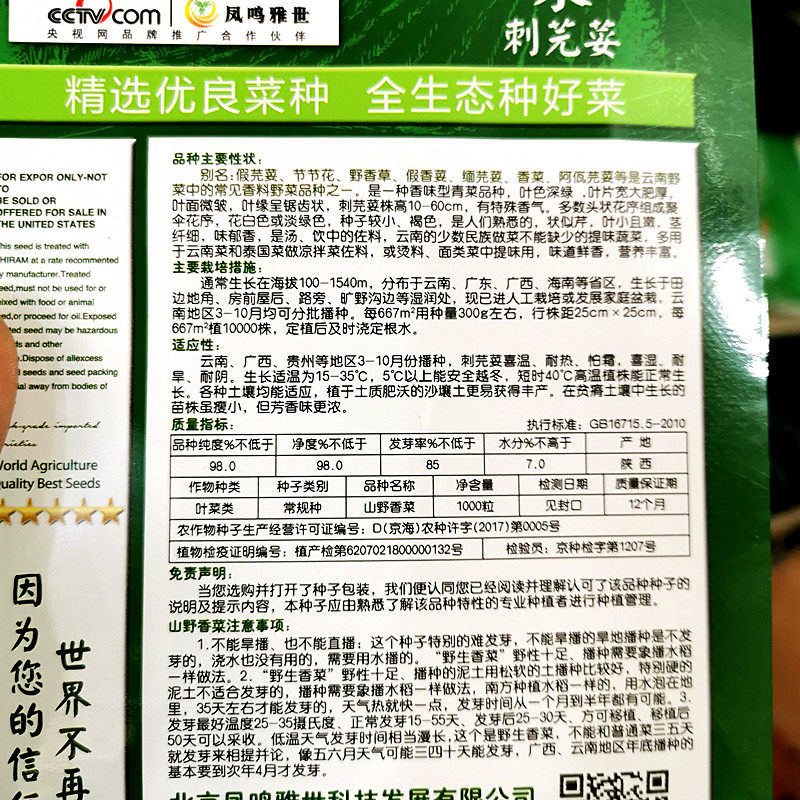 CCTV.com
央视网品牌推广合作伙伴
凤鸣雅世
刺芫荽
精选优良菜种 全生态种好菜
FOR EXPOR ONLY-NOT
TO
BE SOLD OR
OFFERED FOR SALE IN
THE UNITED STATES
This seed is treated with
THIRAM at a rate recommended
by manufacturer.Treated
seed,must not be used for or
mixed with food or animal
feed,or proceed for oil.Exposed
treated seed may be hazardous
and other
Dispose of allexcess
seeds and seed packing
away from bodies of
World Agriculture
Quality Best Seeds
因为您的信
世界不再
品种主要性状:
别名:假芫荽、节节花、野香草、假香荽、缅芫荽、香菜、阿佤芫荽等是云南野
菜中的常见香料野菜品种之一。是一种香味型青菜品种,叶色深绿,叶片宽大肥厚,
叶面微皱,叶缘呈锯齿状,刺芫荽株高10-60cm,有特殊香气。多数头状花序组成聚
伞花序,花白色或淡绿色,种子较小、褐色,是人们熟悉的,状似芹,叶小且嫩,茎
纤细,味郁香,是汤、饮中的佐料,云南的少数民族做菜不能缺少的提味蔬菜,多用
于云南菜和泰国菜做凉拌菜佐料,或烫料、面类菜中提味用,味道鲜香,营养丰富。
主要栽培措施:
通常生长在海拔100-1540m,分布于云南、广东、广西、海南等省区,生长于田
边地角、房前屋后、路旁、旷野沟边等湿润处,现已进人工栽培或发展家庭盆栽,云
南地区3-10月均可分批播种。每667m²用种量300g左右,行株距25cm×25cm,每
667m²植10000株,定植后及时浇定根水。
适应性:
云南、广西、贵州等地区3-10月份播种,刺芫荽喜温、耐热、怕霜,喜湿、耐
旱、耐阴。生长适温为15-35℃,5℃以上能安全越冬,短时40℃高温植株能正常生
长。各种土壤均能适应,植于土质肥沃的沙壤土更易获得丰产。在贫瘠土壤中生长的
苗株虽瘦小,但芳香味更浓。
质量指标: 执行标准:GB16715.5-2010
品种纯度%不低于 净度%不低于 发芽率%不低于 水分%不高于 产 地
98.0 98.0 85 7.0 陕 西
作物种类 种子类别 品种名称 净含量 检测日期 质量保证期
叶菜类 常规种 山野香菜 1000粒 见封口 12个月
农作物种子生产经营许可证编号:D(京海)农种许字(2017)第0005号
植物检疫证明编号:植产检第6207021800000132号 检验员:京种检字第1207号
免责声明:
当您选购并打开了种子包装,我们便认同您已经阅读并理解认可了该品种种子的
说明及提示内容,本种子应由熟悉了解该品种特性的专业种植者进行种植管理。
山野香菜注意事项:
1.不能旱播、也不能直播:这个种子特别的难发芽,不能旱播的旱地播种是不发
芽的,浇水也没有用的,需要用水播的。“野生香菜”野性十足、播种需要象播水稻
一样做法。2.“野生香菜”野性十足、播种的泥土用松软的土播种比较好,特别硬的
泥土不适合发芽的,播种需要象播水稻一样做法,南方种植水稻一样的,用水泡在地
里,35天左右才能发芽的,天气热就快一点,发芽时间从一个月到半年都有可能。3.
发芽最好温度25-35摄氏度、正常发芽15-55天、发芽后25-30天、方可移植、移植后
50天可以采收。低温天气发芽时间相当漫长,这个是野生香菜,不能和普通菜三五天
就发芽来相提并论,像五六月天气可能三四十天能发芽,广西、云南地区年底播种的
基本要到次年4月才发芽。
北京凤鸣雅世科技发展有限公司